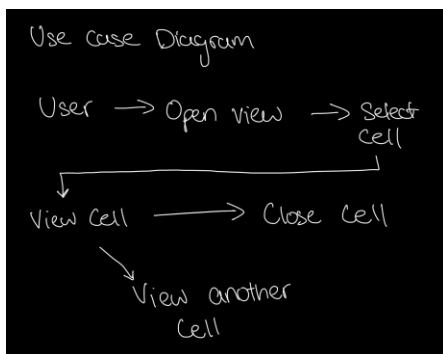 Use case Diagram
User → Open view → Select
cell
View cell → Close cell
View another
cell